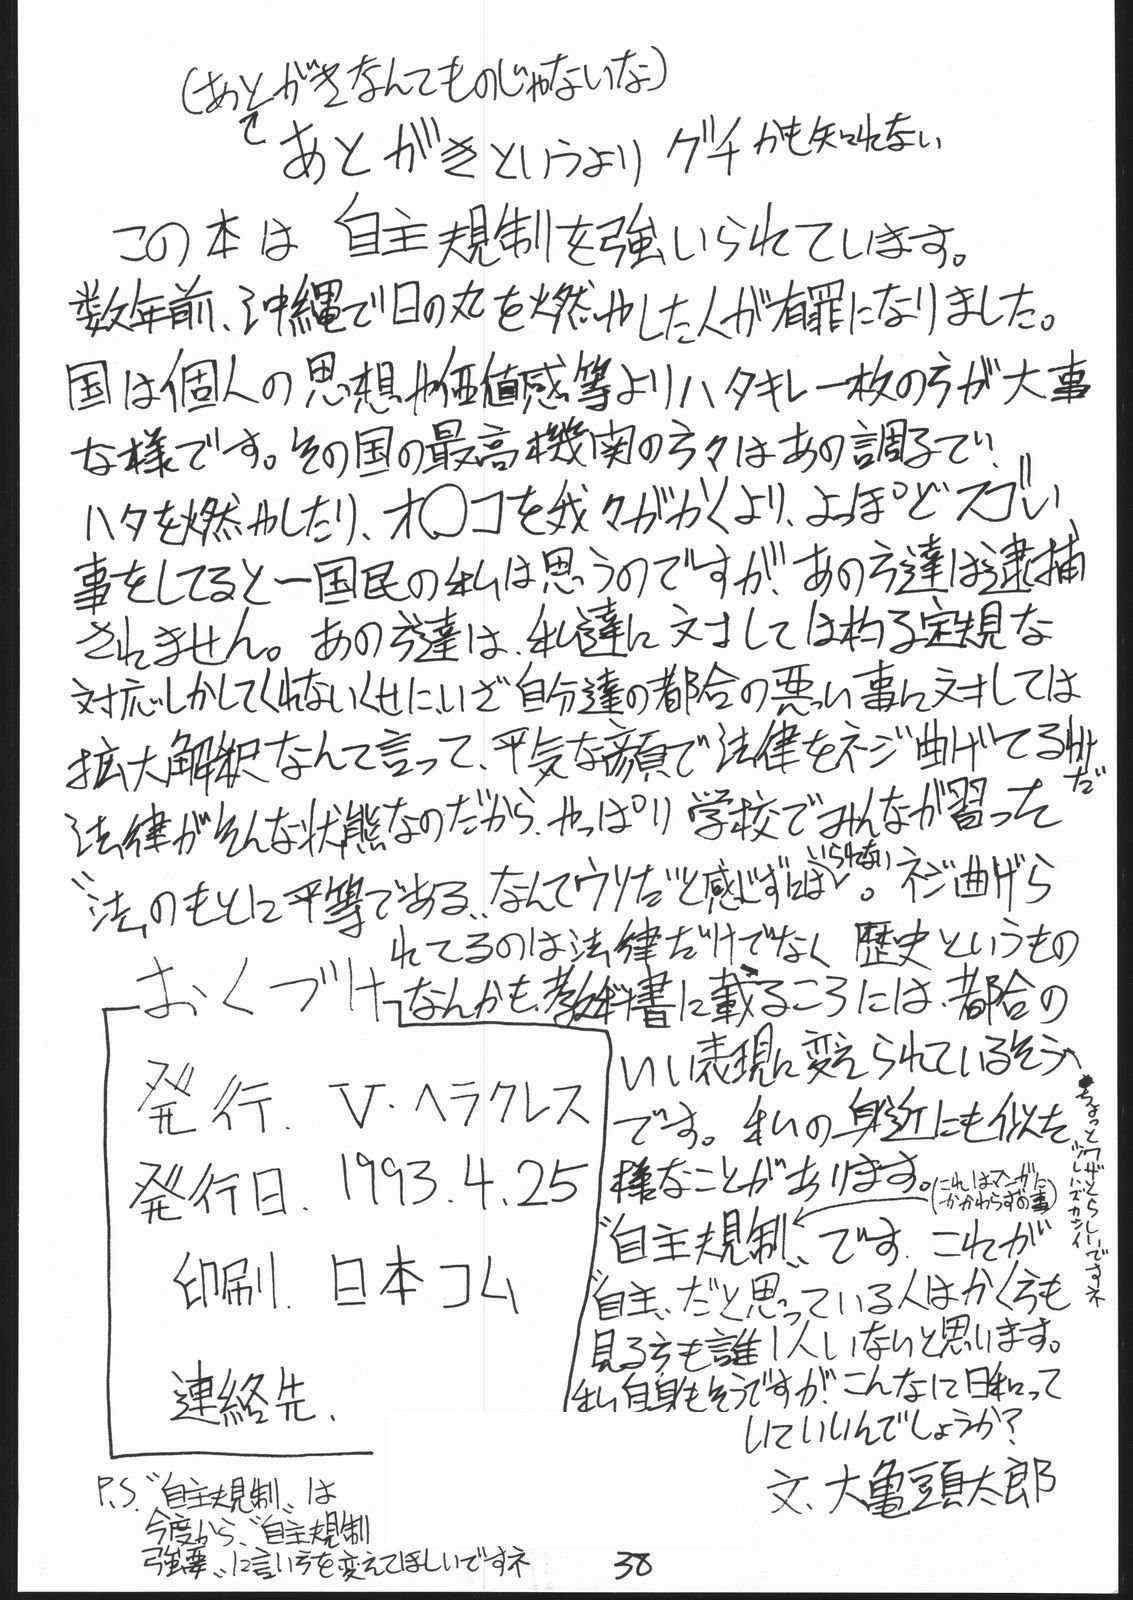 (あとがきなんてものじゃないな)
あとがきというより グチかも知れない
この本は 自主規制を強いられています。
数年前、沖縄で日の丸を燃やした人が有罪になりました。
国は個人の思想や価値感等よりハタキレ一枚の方が大事
な様です。その国の最高機関の方々はあの調子で、
ハタを燃やしたり、オ○コを我々がかくより、よっぽどスゴい
事をしてると一国民の私は思うのですが、あの方達は逮捕
されません。あの方達は、私達に対しては杓子定規な
対応しかしてくれないくせに、いざ自分達の都合の悪い事に対しては
拡大解釈なんて言って、平気な顔で法律をネジ曲げてるわけだ
法律がそんな状態なのだから、やっぱり学校でみんなが習った
〝法のもとに平等である〟なんてウソだと感じずにはいられない。ネジ曲げら
れてるのは法律だけでなく 歴史というもの
なんかも、教科書に載るころには、都合の
いい表現に変えられているそう
です。私の身近にも似た
様なことがあります。(これはマンガにかかわらずの事)
〝自主規制〟です。これが
〝自主〟だと思っている人はかく方も
見る方も誰1人いないと思います。
私自身もそうですが、こんなに日和って
いていいんでしょうか?
文、大亀頭太郎
ちょっとワザとらしいですネ
ハズカシイ
おくづけ
発行. V・ヘラクレス
発行日. 1993.4.25
印刷. 日本コム
連絡先.
P.S.〝自主規制〟は
今度から、〝自主規制
強要〟に言い方を変えてほしいですネ
38